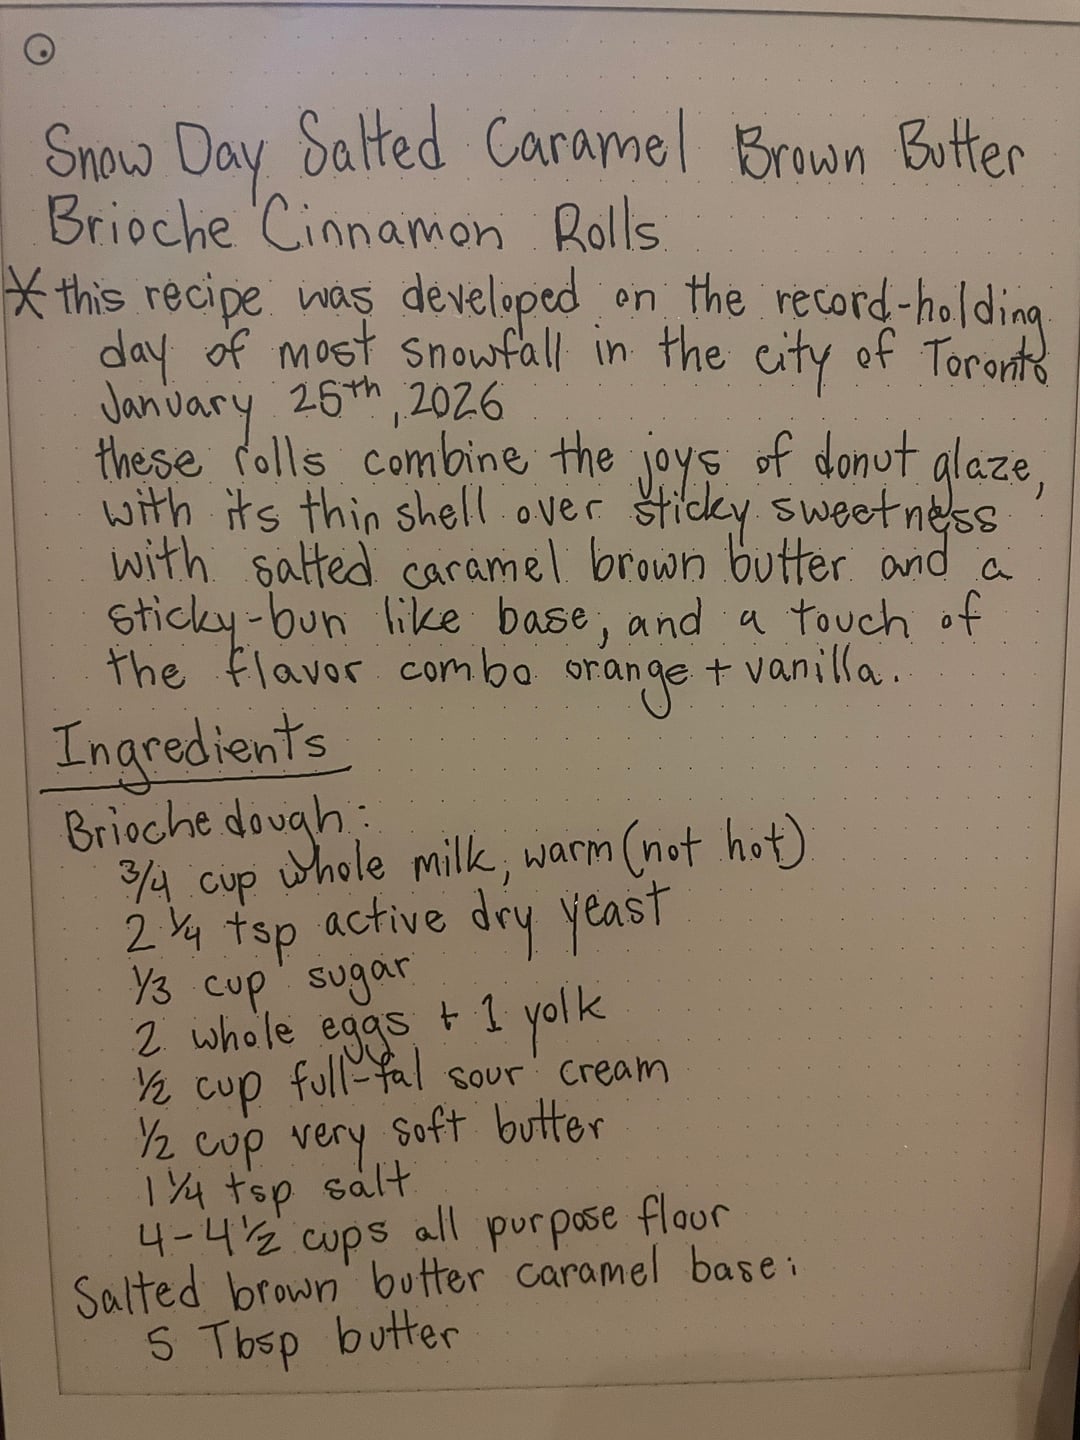 Snow Day Salted Caramel Brown Butter
Brioche Cinnamon Rolls
* this recipe was developed on the record-holding
day of most snowfall in the city of Toronto
January 25th, 2026
these rolls combine the joys of donut glaze,
with its thin shell over sticky sweetness
with salted caramel brown butter and a
sticky-bun like base, and a touch of
the flavor combo orange + vanilla.
Ingredients
Brioche dough:
3/4 cup whole milk, warm (not hot)
2 1/4 tsp active dry yeast
1/3 cup sugar
2 whole eggs + 1 yolk
1/2 cup full-fat sour cream
1/2 cup very soft butter
1 1/4 tsp salt
4-4 1/2 cups all purpose flour
Salted brown butter caramel base:
5 Tbsp butter